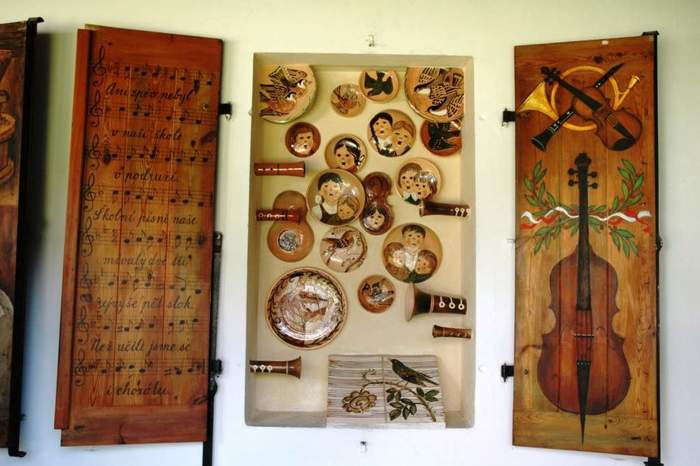 Ani zpěv nebyl
v naší škole
v podruží.
Školní písní naše
mívaly dvě tři
nejvýše pět slok.
Než učili jsme se
i chorálu.